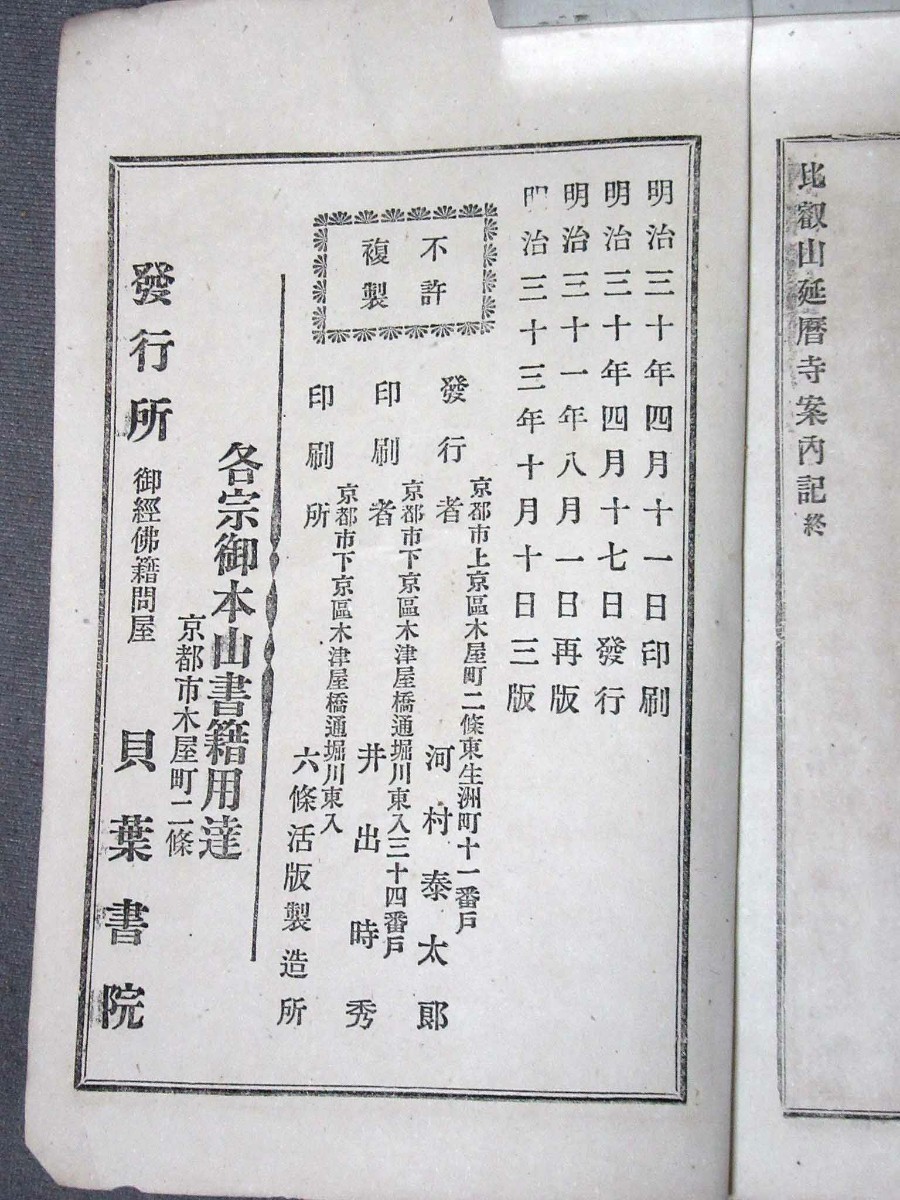 比叡山延暦寺案内記終
明治三十年四月十一日印刷
明治三十年四月十七日發行
明治三十一年八月一日再版
明治三十三年十月十日三版
不許
複製
發行者
京都市上京區木屋町二條東生洲町十一番戸
河村泰太郎
印刷者
京都市下京區木津屋橋通堀川東入三十四番戸
井出時秀
印刷所
京都市下京區木津屋橋通堀川東入
六條活版製造所
各宗御本山書籍用達
京都市木屋町二條
發行所
御經佛籍問屋
貝葉書院